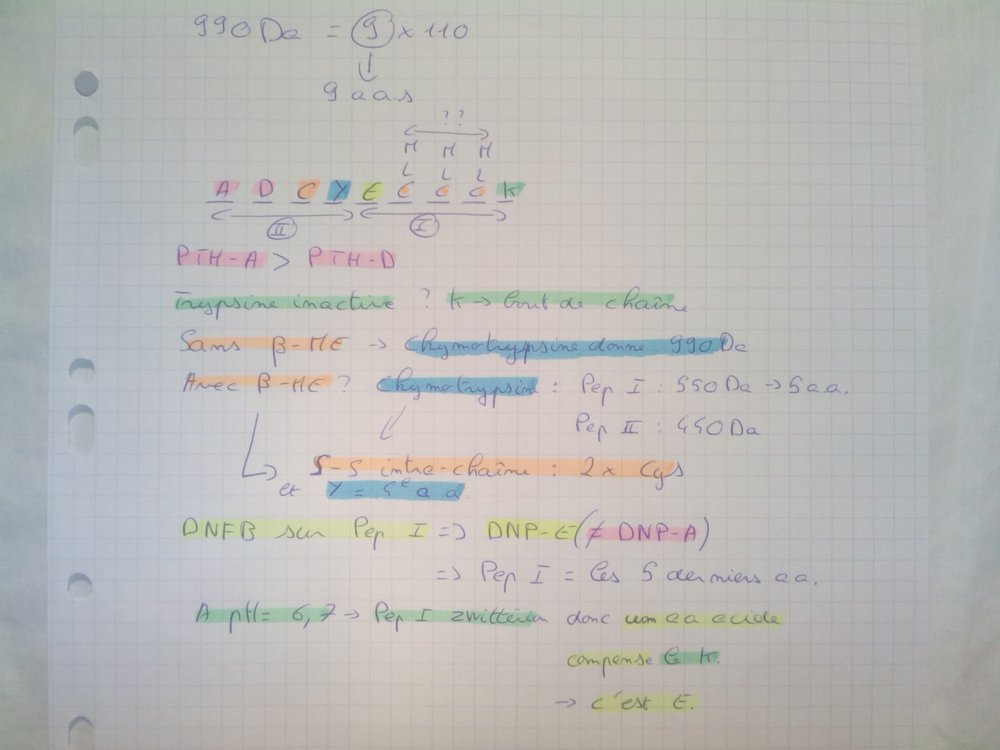 990 Da = 9 x 110
9 aas
??
M M M
L L L
A D C Y E C C C K
II I
PTH-A > PTH-D
Trypsine inactive ? K → bout de chaîne
Sans β-ME → Chymotrypsine donne 990 Da
Avec β-ME ? Chymotrypsin : Pep I : 550 Da → 5 a.a.
Pep II : 440 Da
S-S intra-chaîne : 2 x Cys
et Y = 4e a.a
DNFB sur Pep I => DNP-E (≠ DNP-A)
=> Pep I = les 5 derniers aa.
A pH = 6,7 → Pep I zwittérion donc un aa acide
compense le K.
→ c'est E.